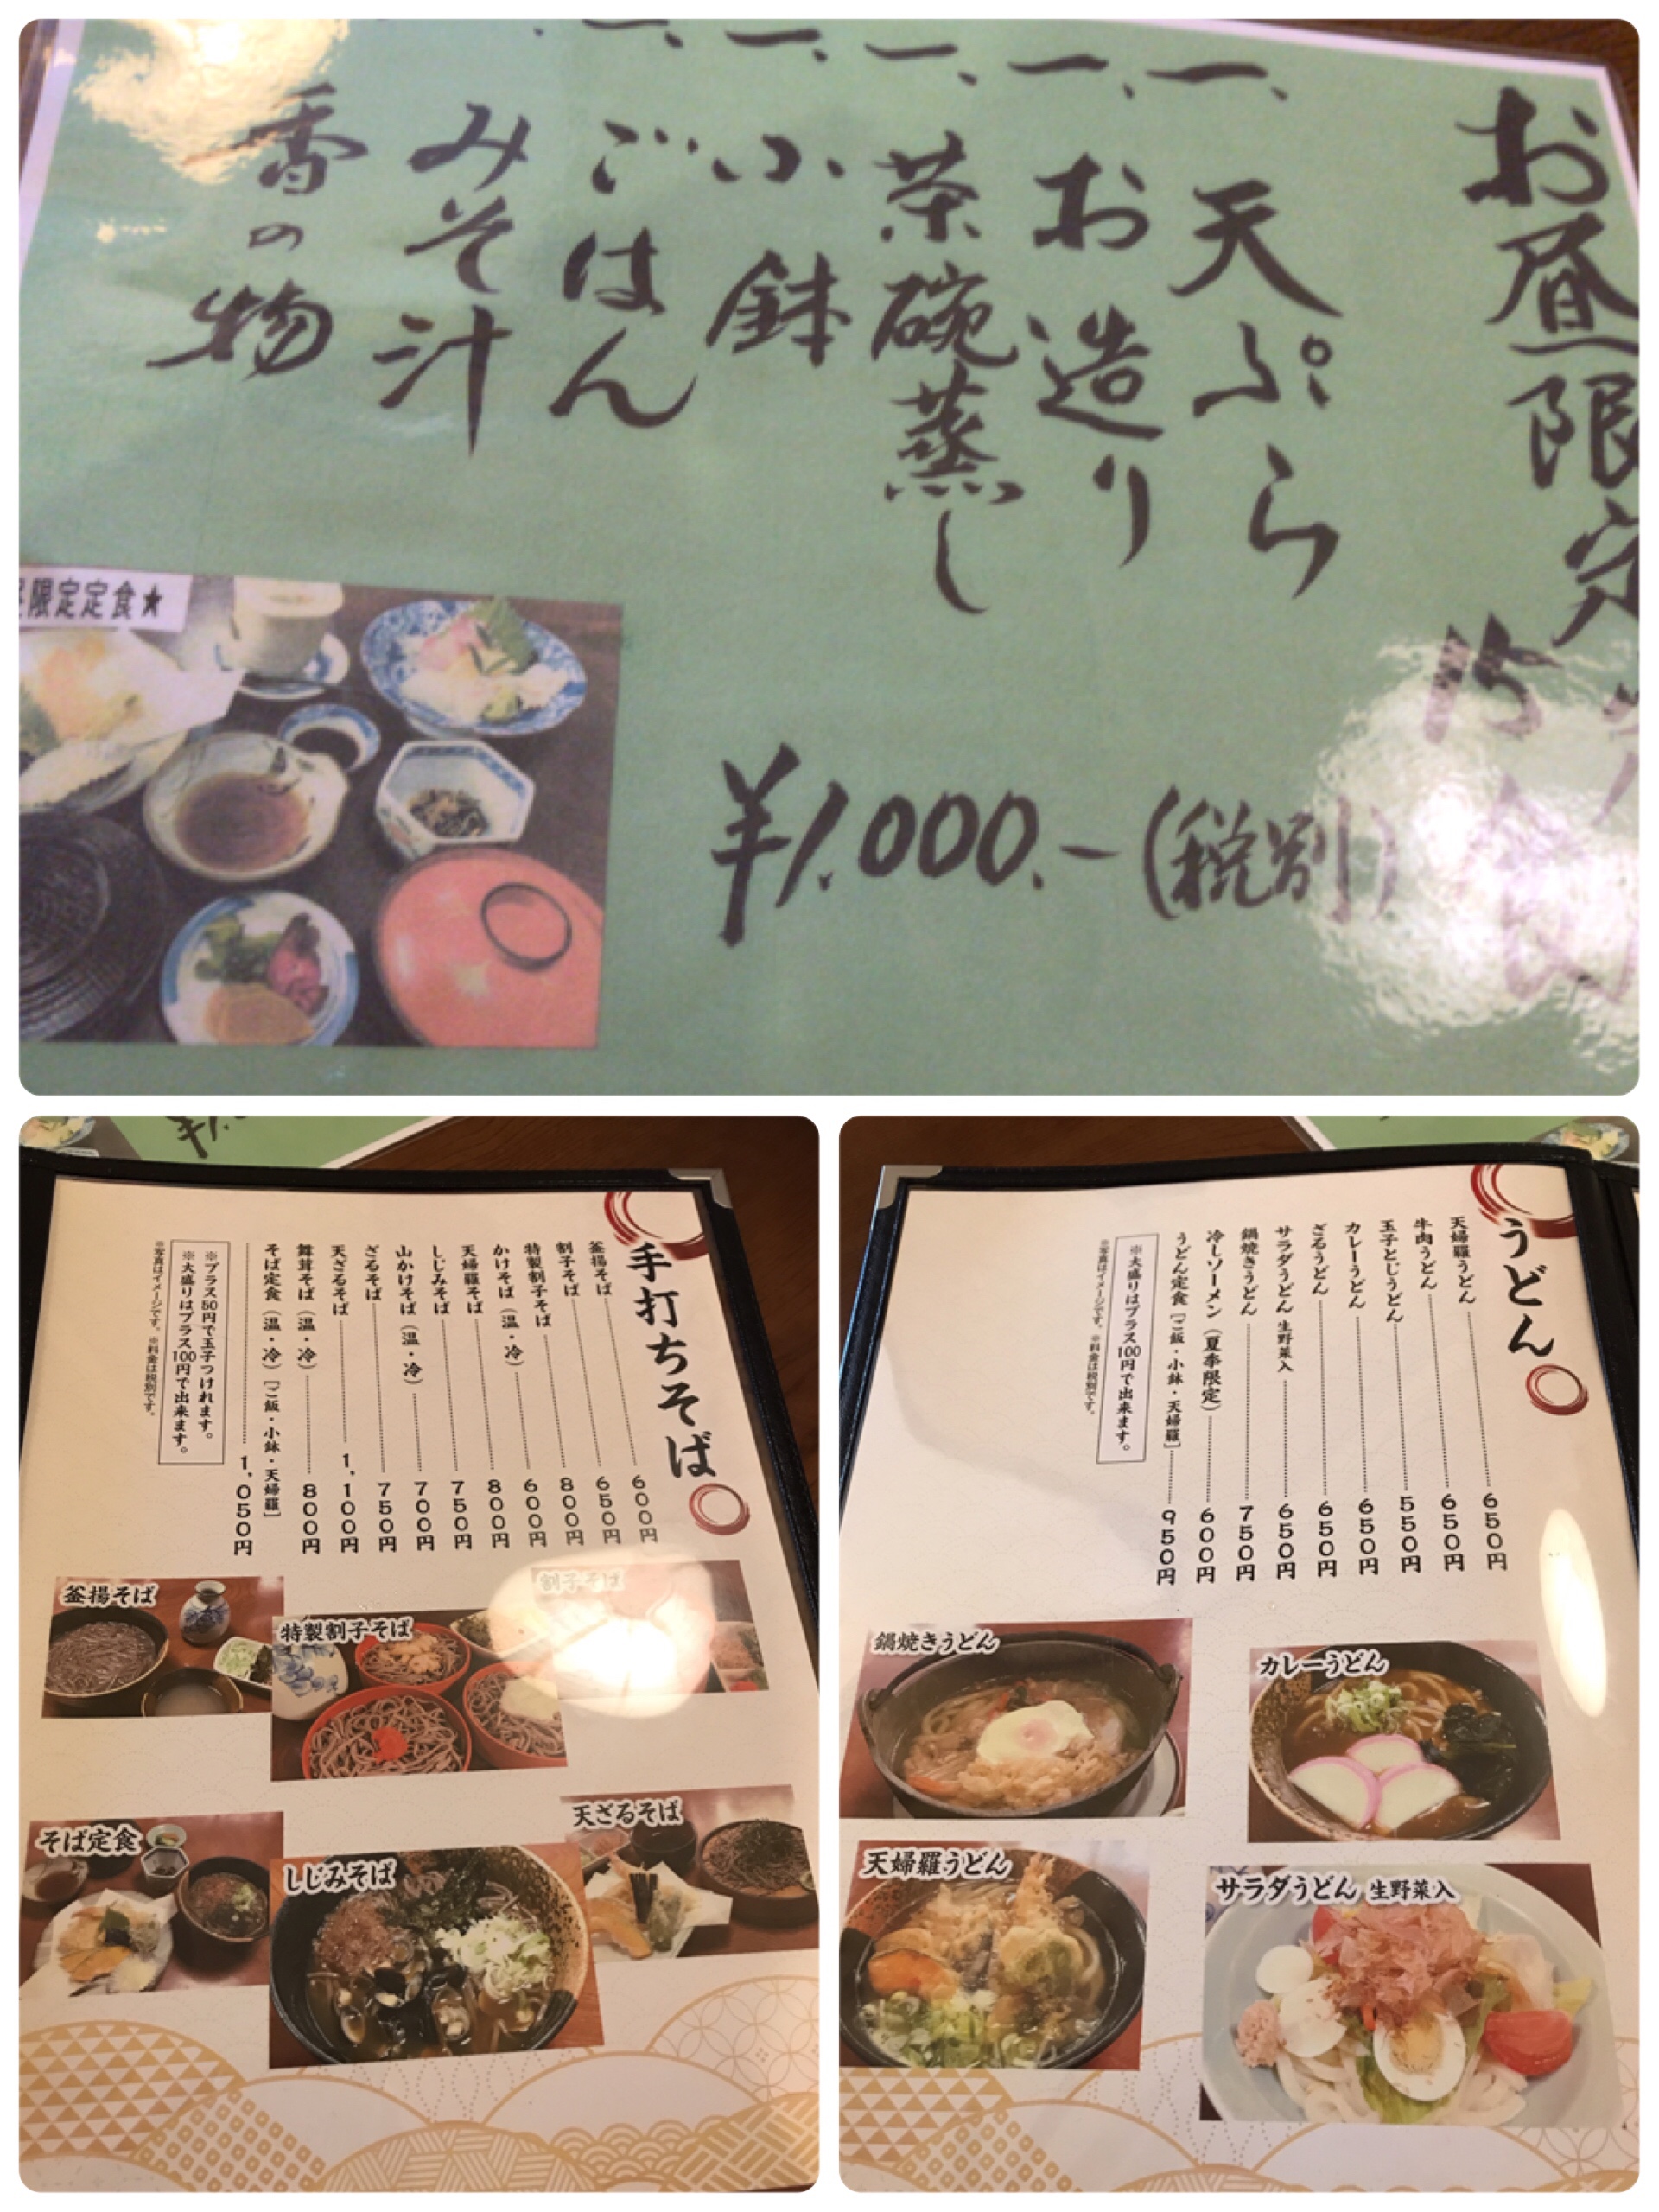 お昼限定
15
一、天ぷら
一、お造り
一、茶碗蒸し
一、小鉢
一、ごはん
みそ汁
香の物
¥1.000.-(税別)
限定定食★
¥1.
手打ちそば
釜揚そば 600円
割子そば 650円
特製割子そば 800円
かけそば(温・冷) 600円
天婦羅そば 800円
しじみそば 750円
山かけそば(温・冷) 700円
ざるそば 750円
天ざるそば 1,100円
舞茸そば(温・冷) 800円
そば定食(温・冷)[ご飯・小鉢・天婦羅]
1,050円
※プラス50円で玉子つけれます。
※大盛りはプラス100円で出来ます。
※写真はイメージです。 ※料金は税別です。
釜揚そば
特製割子そば
割子そば
そば定食
しじみそば
天ざるそば
うどん
天婦羅うどん 650円
牛肉うどん 650円
玉子とじうどん 550円
カレーうどん 650円
ざるうどん 650円
サラダうどん 生野菜入 650円
鍋焼きうどん 750円
冷しソーメン(夏季限定) 600円
うどん定食[ご飯・小鉢・天婦羅] 950円
※大盛りはプラス100円で出来ます。
※写真はイメージです。 ※料金は税別です。
鍋焼きうどん
カレーうどん
天婦羅うどん
サラダうどん 生野菜入